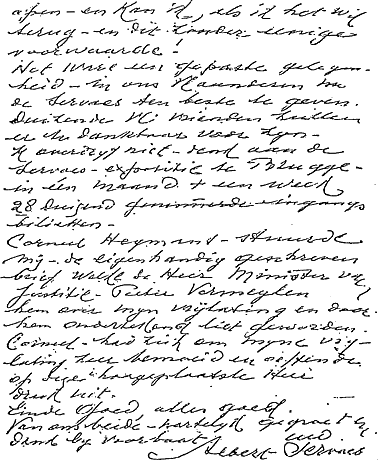 open - en kan ik, als ik het wil
terug - en dit zonder eenige
voorwaarde -
Het ware een gepaste gelegen-
heid - in ons Vlaanderen
de Servaes ten beste te geven.
Duizende vrienden zullen
er U dankbaar voor zyn -
overdryf niet - denk aan de
Servaes - expositie te Brugge -
in één maand + een week
28 Duizend genummerde ingangs
biljetten -
Corneel Heymans - stuurde
my - de eigenhandig geschreven
brief welke de Heer Minister van
Justitie - Pieter Vermeylen
hem over myn vrylating en door
hem onderteekend liet geworden.
Corneel - had zich om myne vry-
lating zeer bemoeid en oefende
op deze hooggeplaatste Heer
druk uit.
Einde goed alles goed.
Van ons beide - hartelyk gegroet en
dank by voorbaat
Albert Servaes